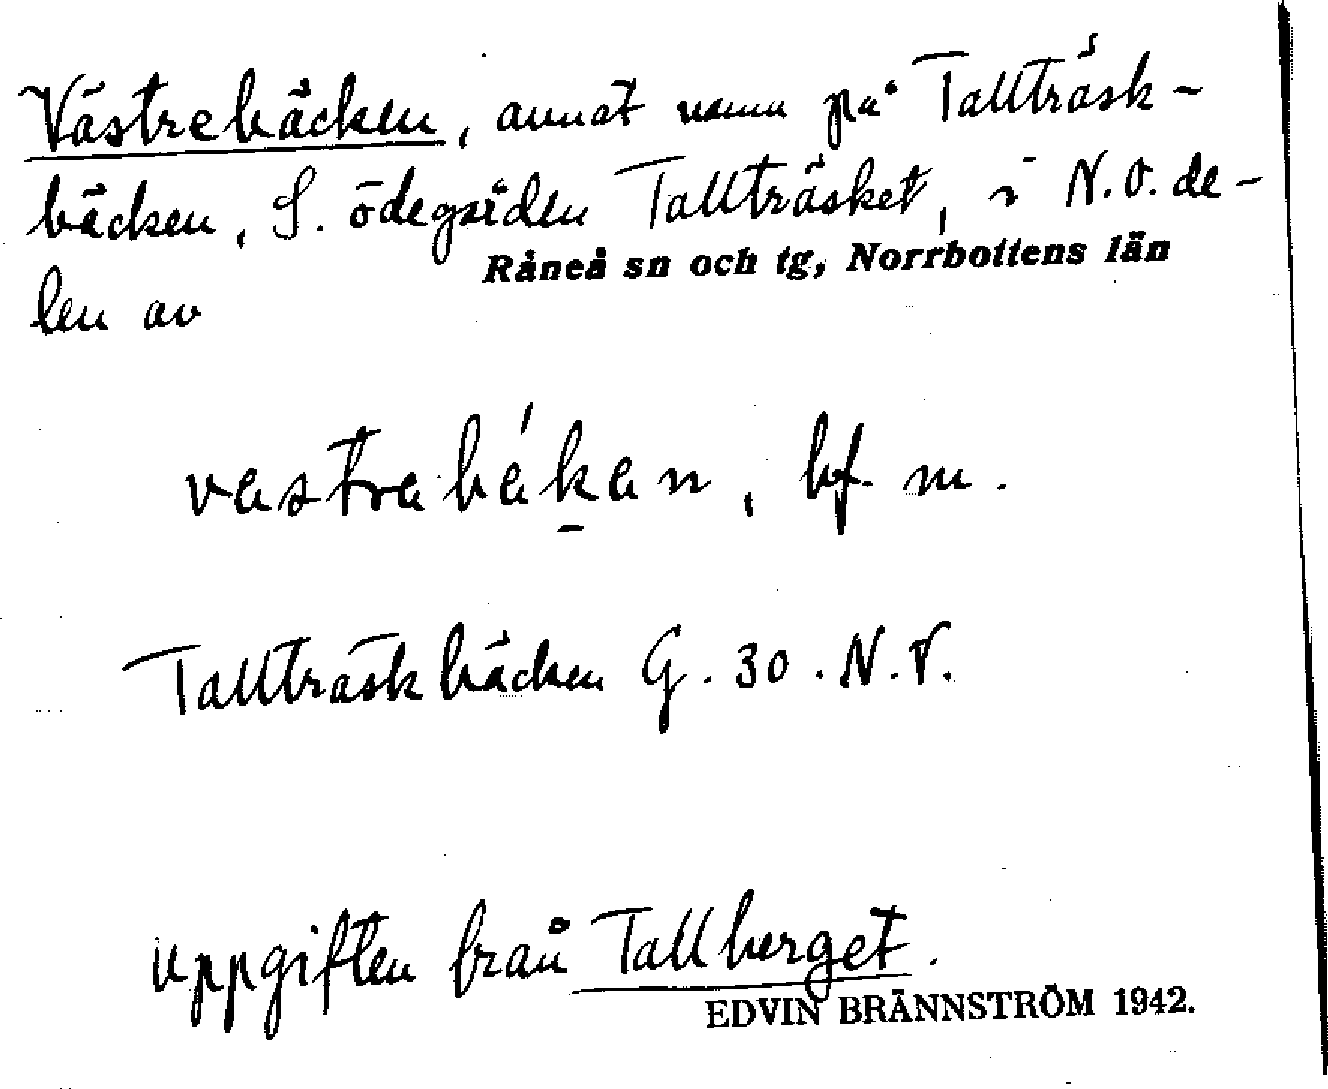 Västrebäcken, annat namn på Tallträsk-
bäcken, S. ödegården Tallträsket, i N.O. de-
Råneå sn och tg, Norrbottens län
len av
vastrabákan, bf. m.
Tallträskbäcken G. 30. N.V.
Uppgiften från Tallberget.
EDVIN BRÄNNSTRÖM 1942.